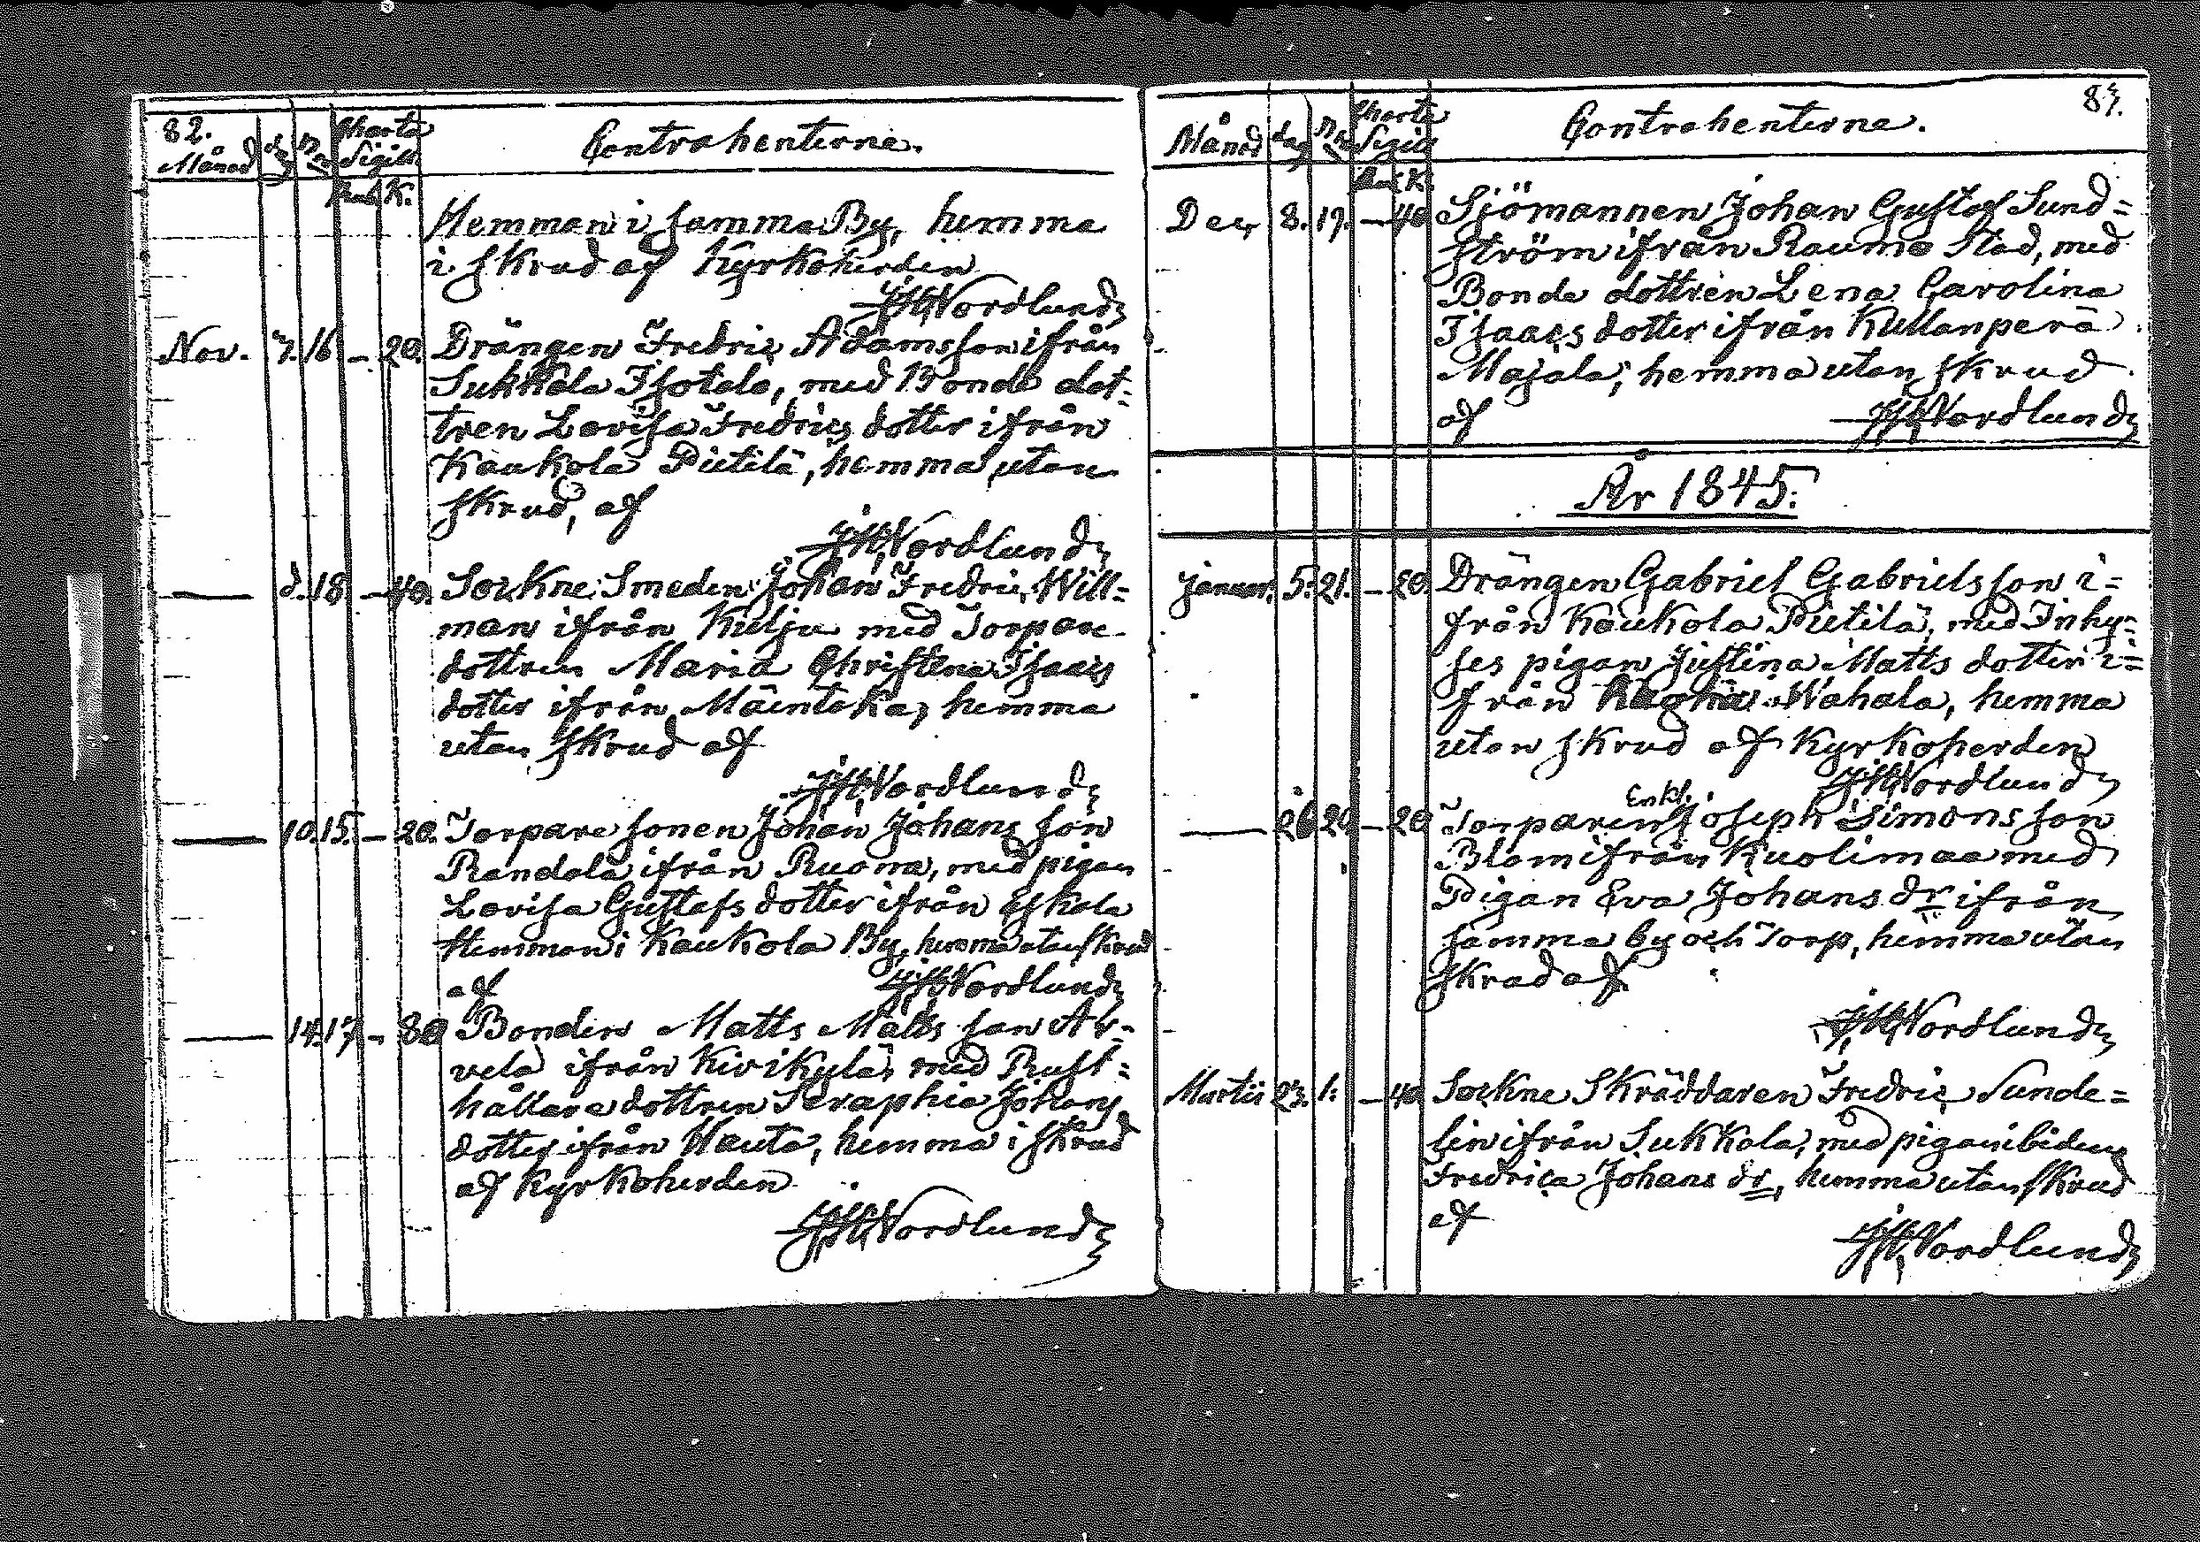 82.
Månad dag No Charta Sigill Contrahenterne.
Rub. K.
Hemman i samma By, hemma
i skrud af Kyrkoherden
JH Nordlund
Nov. 7. 16 — 20. Drängen Fredric Adamsson ifrån
Sukkala Isotalo, med Bonde dot=
tren Lovisa Fredrics dotter ifrån
Kaukola Pietilä, hemma utan
skrud, af
JH Nordlund
— d. 18 — 40. Sockne Smeden Johan Fredric Will=
man ifrån Kulju med Torpare
dottren Maria Christina Isaacs
dotter ifrån Mäentaka, hemma
utan skrud af
JH Nordlund
— 10. 15. — 20. Torpare sonen Johan Johans son
Randala ifrån Ruona, med pigan
Lovisa Gustafs dotter ifrån Eskola
Hemman i Kaukola By, hemma utan skrud
af JH Nordlund
— 14. 17 — 80 Bonden Matts Matts son Ar=
vela ifrån Kivikylä, med Rust=
hållare dottren Seraphia Johans
dotter ifrån Hauta, hemma i skrud
af Kyrkoherden
JH Nordlund
83.
Månad dag No Charta Sigill Contrahenterne.
Rub. K.
Dec. 8. 19. — 40 Sjömannen Johan Gustaf Sund=
ström ifrån Raumo Stad, med
Bonde dottren Lena Carolina
Isaacs dotter ifrån Kullanperä
Majala, hemma utan skrud
af JH Nordlund
År 1845.
Januar. 5. 21. — 20. Drängen Gabriel Gabriels son i=
från Kaukola Pietilä, med Inhy=
ses pigan Justina Matts dotter i=
från Wahala, hemma
utan skrud af Kyrkoherden
JH Nordlund
Enkl.
— 26 20 — 20 Torparen Joseph Simons son
Blom ifrån Kuolimaa med
Pigan Eva Johans dr ifrån
samma by och Torp, hemma utan
skrud af
JH Nordlund
Martii 23. 1: — 40 Sockne Skräddaren Fredric Sunde=
lin ifrån Sukkala, med pigan ibidem
Fredrica Johans dr, hemma utan skrud
af
JH Nordlund